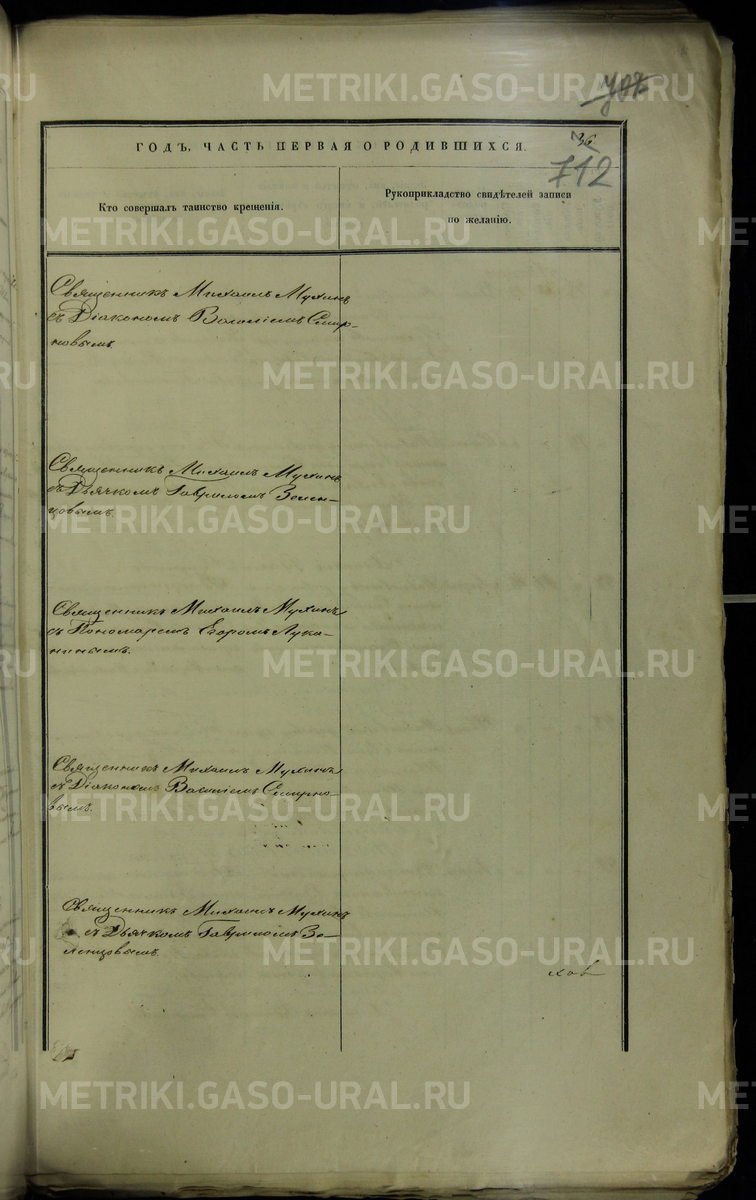 METRIKI.GASO-URAL.RU
708
ГОДЪ, ЧАСТЬ ПЕРВАЯ О РОДИВШИХСЯ.
36
712
Кто совершалъ таинство крещенія.
Рукоприкладство свидѣтелей записи
по желанію.
Священникъ Михаилъ Мухинъ
съ Діакономъ Василіемъ Смир-
новымъ
Священникъ Михаилъ Мухинъ
съ Дьячкомъ Гавриломъ Зелен-
цовымъ
Священникъ Михаилъ Мухинъ
съ Пономаремъ Егоромъ Лука-
нинымъ.
Священникъ Михаилъ Мухинъ
съ Діакономъ Василіемъ Смирно-
вымъ.
Священникъ Михаилъ Мухинъ
съ Дьячкомъ Гавріиломъ Зе-
ленцовымъ.
ховъ